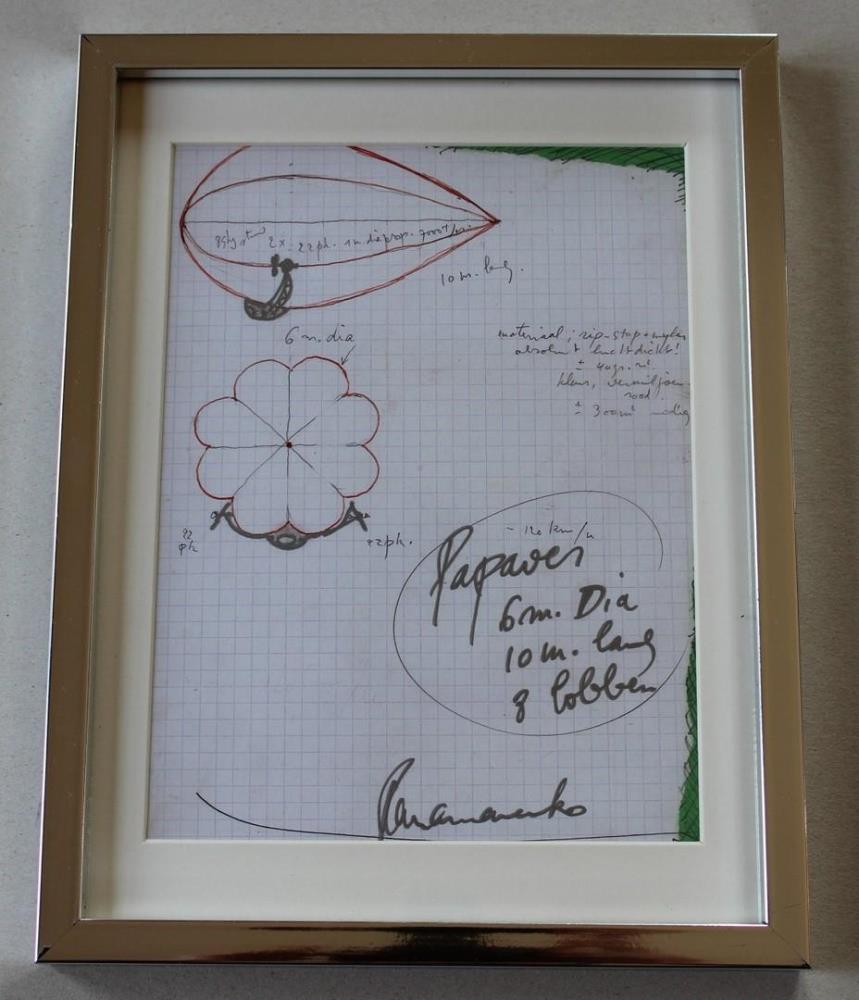 2x 22ph. 1m. dia prop. 7000 t/m.
10 m. lang.
6 m. dia
materiaal; rip-stop + mylar
absoluut luchtdicht!
± 40gr. m²
kleur, vermiljoen-
rood.
± 300m² nodig
22
ph
22ph.
- 120 km/u
Papaver
6m. Dia
10 m. lang
8 lobben
Panamarenko